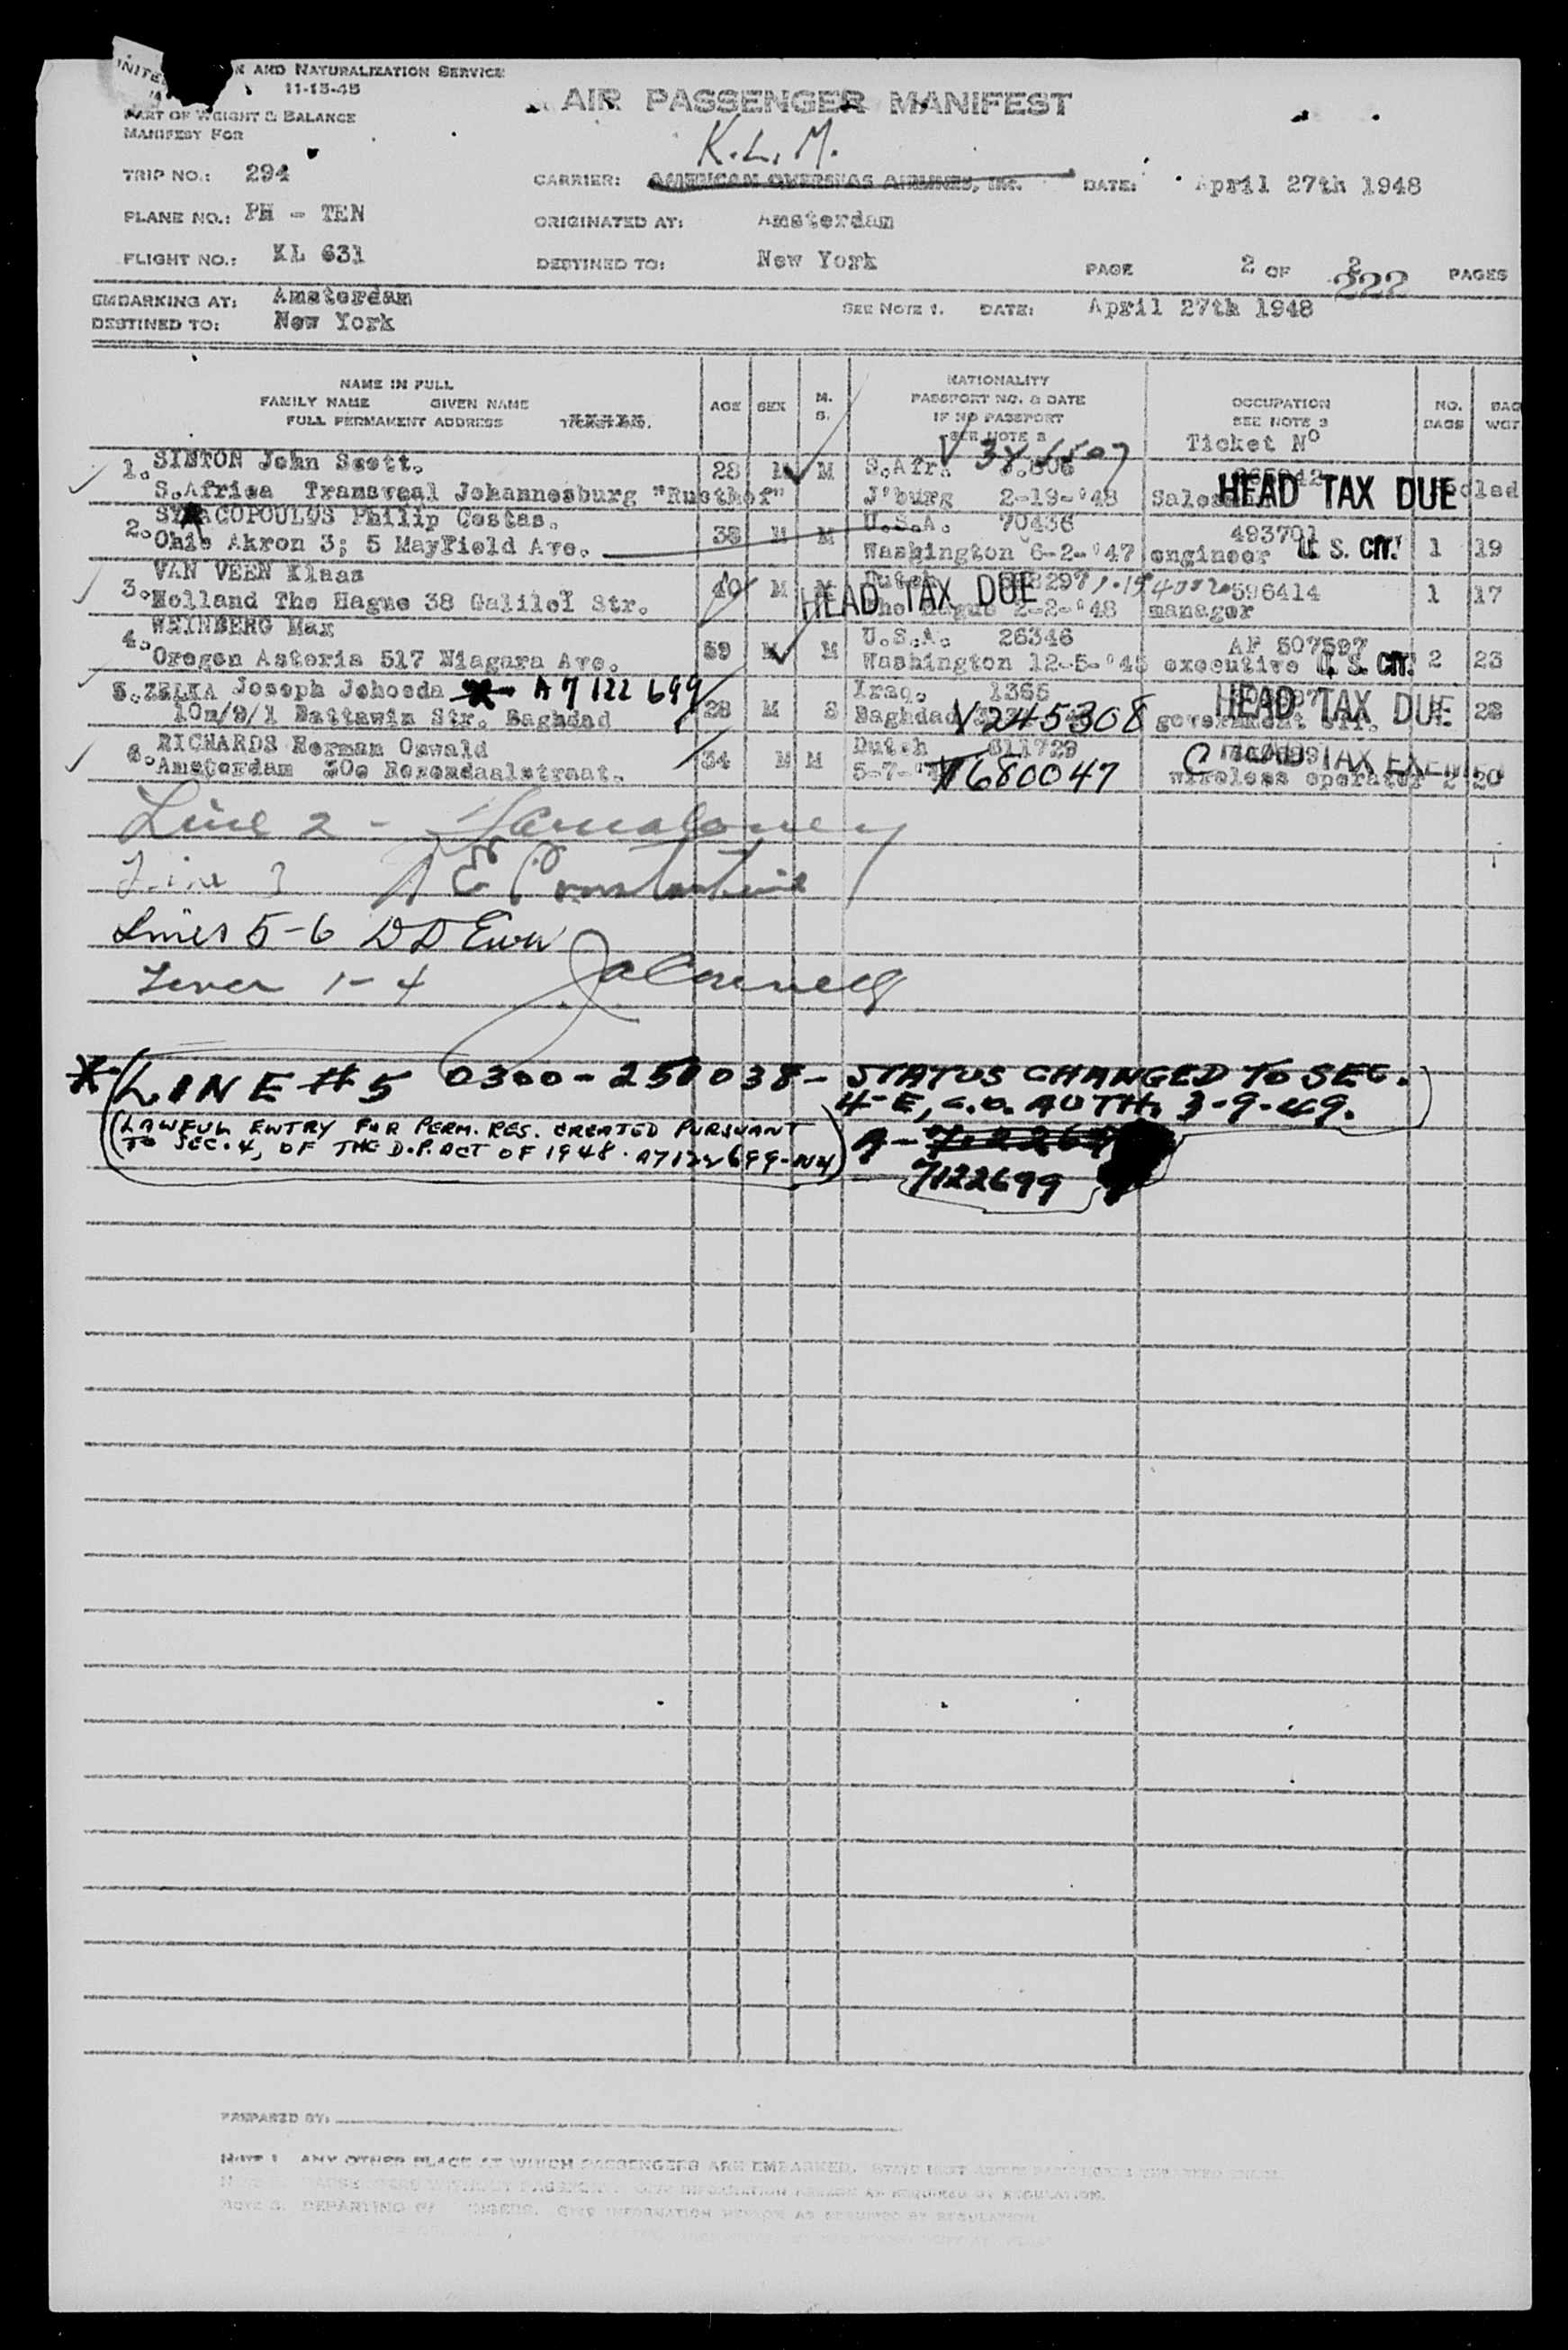 AND NATURALIZATION SERVICE
11-15-45
PART OF WEIGHT & BALANCE
MANIFEST FOR
AIR PASSENGER MANIFEST
K.L.M.
TRIP NO.: 294 CARRIER: AMERICAN OVERSEAS AIRLINES, INC. DATE: April 27th 1948
PLANE NO.: PH - TEN ORIGINATED AT: Amsterdam
FLIGHT NO.: KL 631 DESTINED TO: New York PAGE 2 OF 2 222 PAGES
EMBARKING AT: Amsterdam SEE NOTE 1. DATE: April 27th 1948
DESTINED TO: New York
NAME IN FULL
FAMILY NAME GIVEN NAME
FULL PERMANENT ADDRESS
AGE SEX M. S.
NATIONALITY
PASSPORT NO. & DATE
IF NO PASSPORT
SEE NOTE 2
OCCUPATION
SEE NOTE 3
Ticket No
NO. BAGS
BAG WGT
1. SINTON John Scott. 28 M M S.Afr.
S.Africa Transvaal Johannesburg "Rusthof" J'burg 2-19-'48 HEAD TAX DUE
2. Philip Costas. 38 M M U.S.A. 70436 493701
Ohio Akron 3; 5 Mayfield Ave. Washington 6-2-'47 engineer U. S. CIT. 1 19
3. VAN VEEN Klaas 40 M M Dutch 596414
Holland The Hague 38 Galileï Str. HEAD TAX DUE The Hague 2-2-'48 manager 1 17
4. WEINBERG Max 59 M M U.S.A. 26346 AP 507597
Oregon Astoria 517 Niagara Ave. Washington 12-5-'45 executive U. S. CIT. 2 23
5. ZELKA Joseph Jehoeda A7122699 28 M S Iraq. 1365 HEAD TAX DUE
10m/9/1 Battawin Str. Baghdad Baghdad V245308 government off. 28
6. RICHARDS Herman Oswald 34 M M Dutch 611729 HEAD TAX EXEMPT
Amsterdam 30e Rozendaalstraat. 5-7- V680047 wireless operator 2 20
Line 2 -
Line 3
Lines 5-6 DD
1-4
LINE #5 0300-250038- STATUS CHANGED TO SEC.
4-E, C.O. AUTH. 3-9-49.
(LAWFUL ENTRY FOR PERM. RES. CREATED PURSUANT
TO SEC. 4, OF THE D.P. ACT OF 1948. A7122699-NY)
A-
7122699
PREPARED BY:
NOTE 1. ANY OTHER PLACE AT WHICH PASSENGERS ARE EMBARKED.